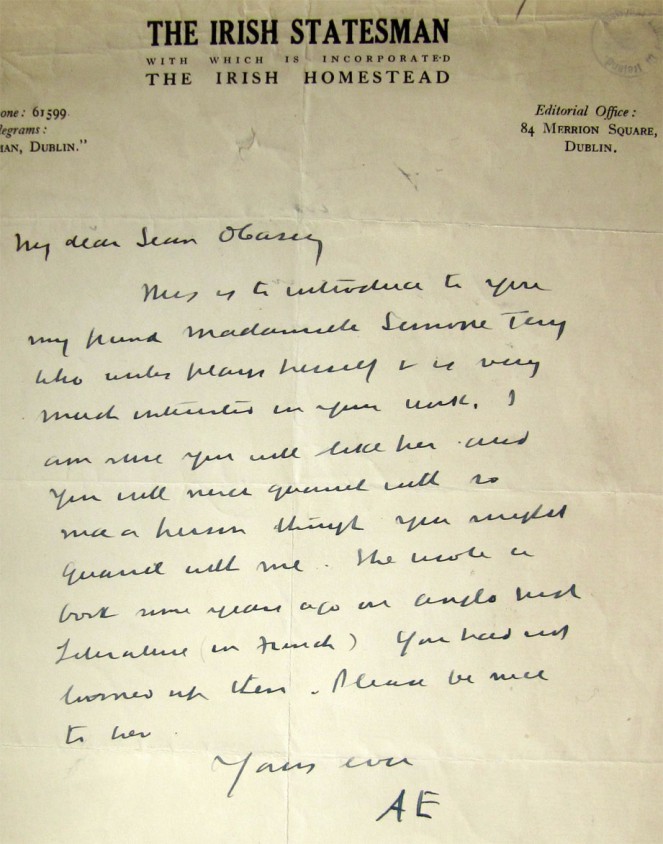 THE IRISH STATESMAN
WITH WHICH IS INCORPORATED
THE IRISH HOMESTEAD
one: 61599
legrams:
IAN, DUBLIN."
Editorial Office:
84 MERRION SQUARE,
DUBLIN.
My dear Sean OCasey
This is to introduce to you
my friend Madamoiselle Simone Tery
who writes plays herself & is very
much interested in your work. I
am sure you will like her and
you will never quarrel with so
a person though you might
quarrel with me. She wrote a
book some years ago on Anglo Irish
Literature (in French) You had not
loomed up then. Please be nice
to her
Yours ever
AE